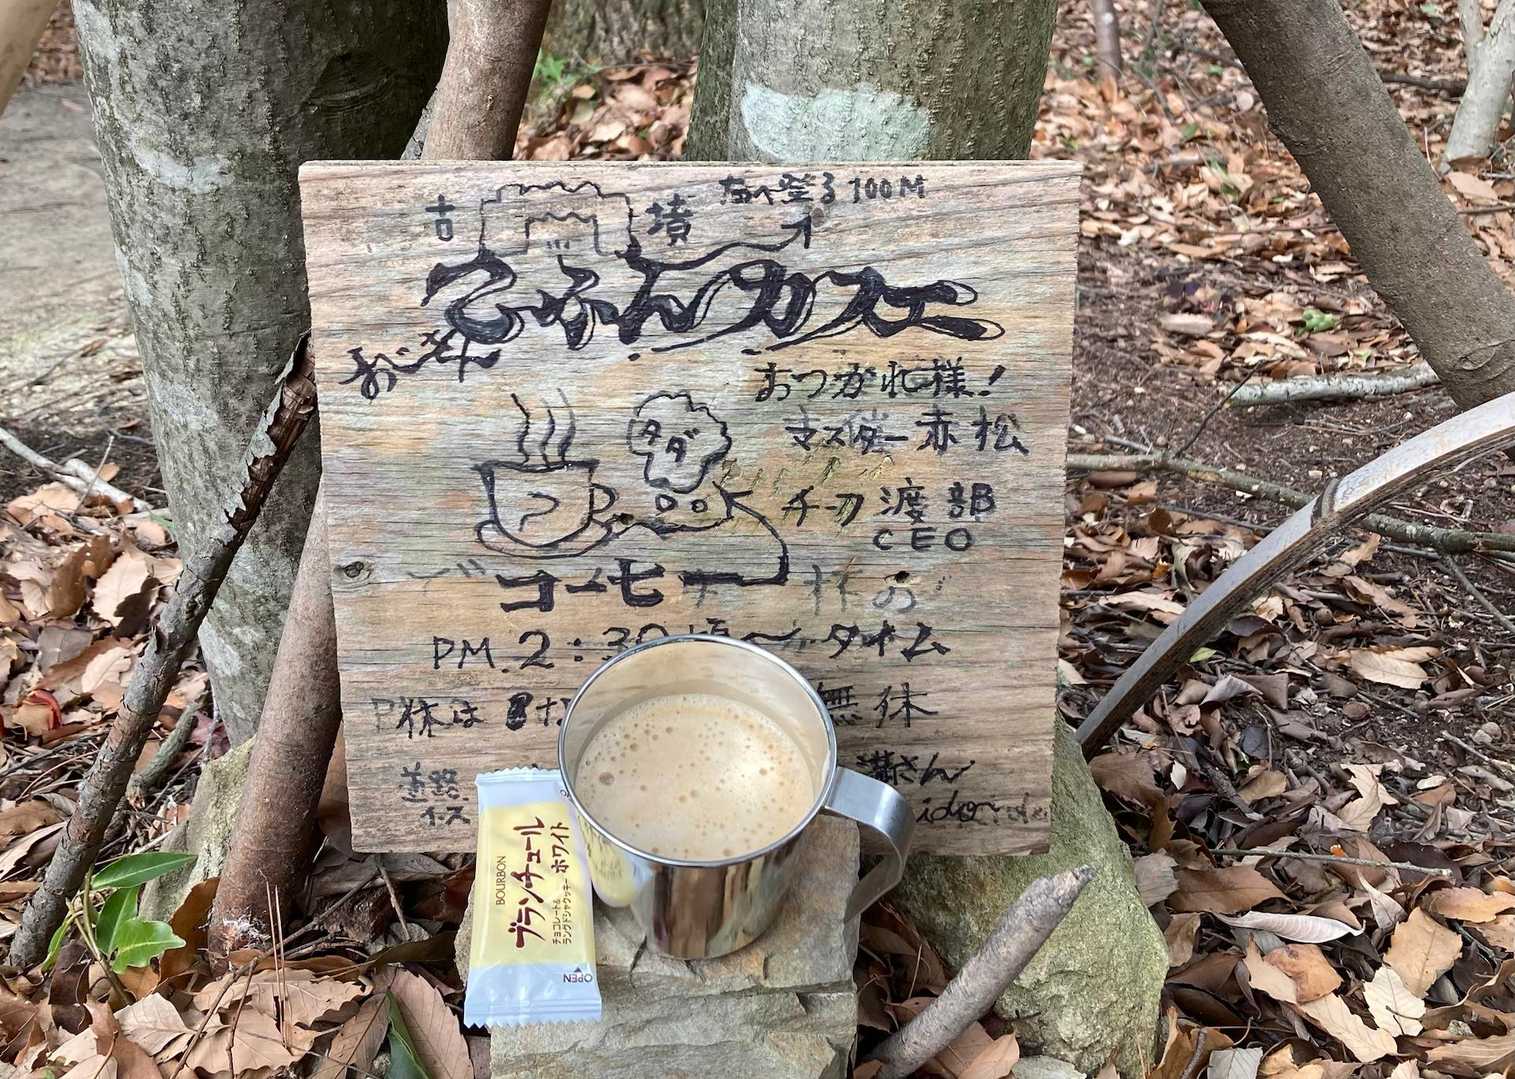 古墳
登る100M
こふんカフェ
おじさん
おつかれ様！
マスター赤松
タダ
チーフ渡部
CEO
コーヒー
PM.2:30頃〜
タイム
休は
無休
道路
BOURBON
ブランチュール
ホワイト
チョコレート&
ラングドシャクッキー
OPEN